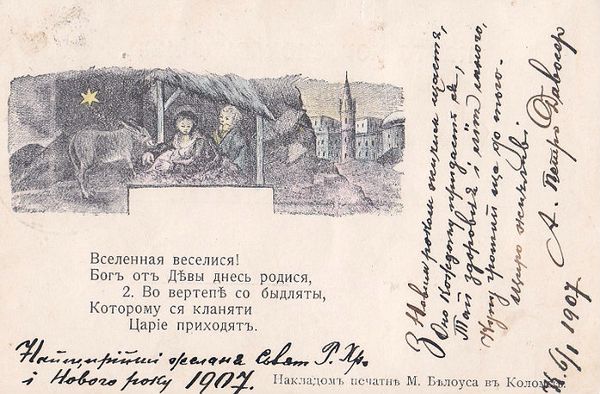 Вселенная веселися!
Богъ отъ Дѣвы днесь родися,
2. Во вертепѣ со быдляты,
Которому ся кланяти
Царіе приходятъ.
Найщирійші желаня Свят Р. Хр.
і Нового року 1907.
Накладомъ печатнѣ М. Бѣлоуса въ Коломыѣ.
З Новим роком жичим щастя,
Оно кождому придасть ся,
Тай здоровля і літ много,
Купу гроший ще до того.
Щиро жичливі
А. Петро
6/I 1907